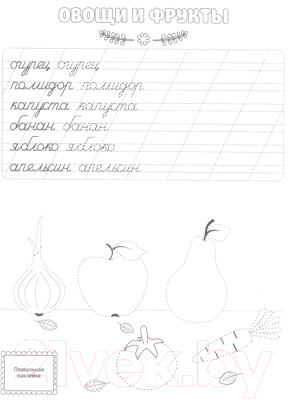 ОВОЩИ И ФРУКТЫ
огурец огурец
помидор помидор
капуста капуста
банан банан
яблоко яблоко
апельсин апельсин
Похвальная
наклейка
alvek.by